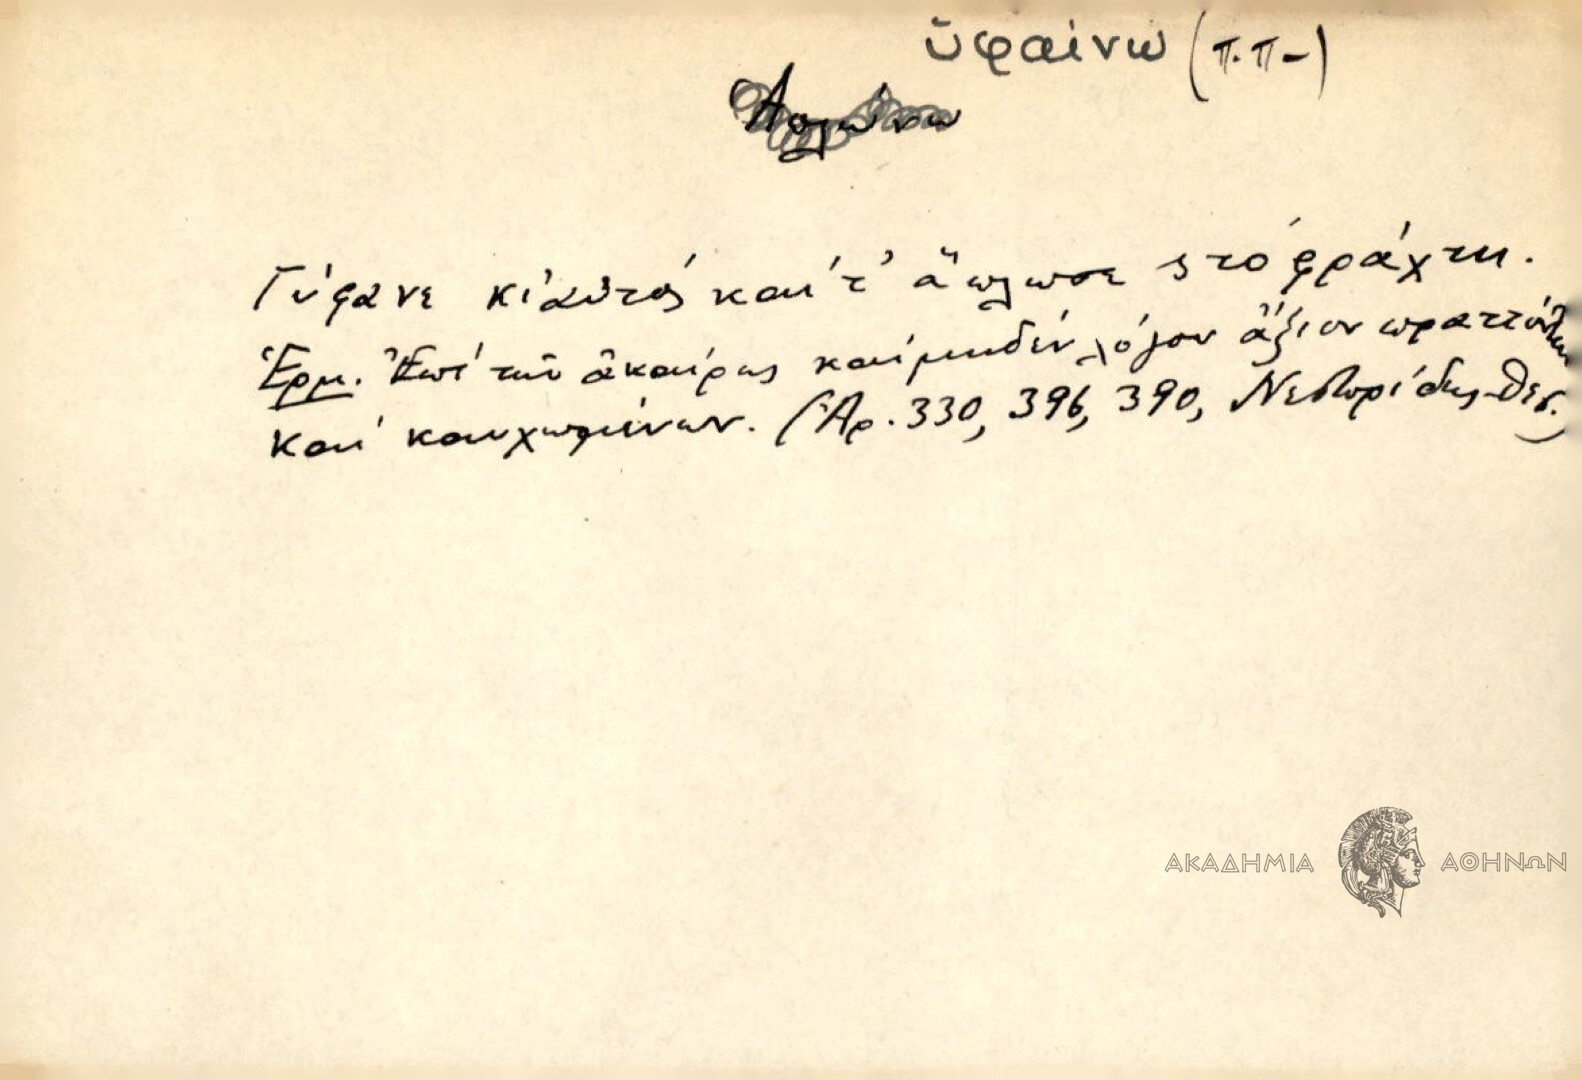 ὑφαίνω (π.π-)
Ἁπλώνω
Γύφανε κι' αὐτός καί τ' ἅπλωσε στό φράχτη.
Ἑρμ. Ἐπί τῶν ἀκαίρως καί μηδέν λόγου ἄξιον πραττόντων
καί καυχωμένων. (Ἀρ. 330, 396, 390, Νεστορίδης-Θεσ.)
ΑΚΑΔΗΜΙΑ ΑΘΗΝΩΝ